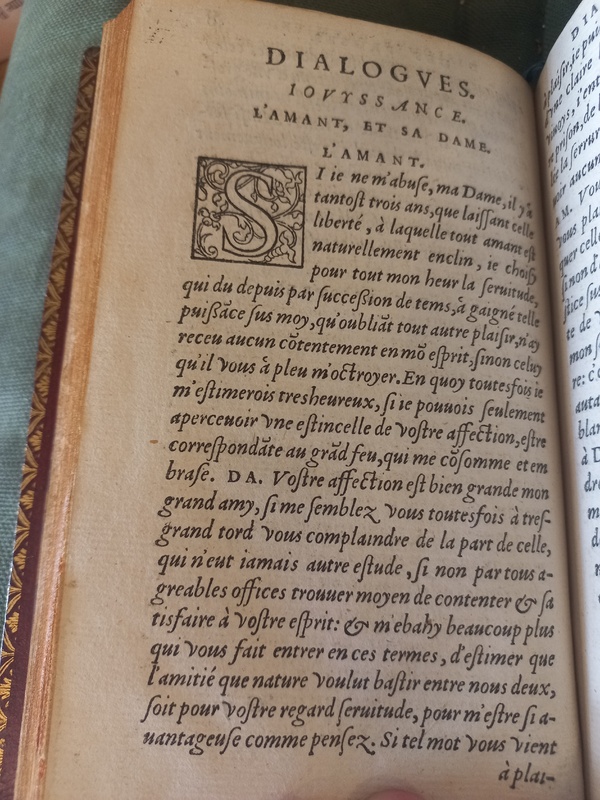 DIALOGVES.
IOVYSSANCE.
L'AMANT, ET SA DAME.
L'AMANT.
SI ie ne m'abuſe, ma Dame, il y a
tantoſt trois ans, que laiſſant celle
liberté, à laquelle tout amant eſt
naturellement enclin, ie choiſy
pour tout mon heur la ſeruitude,
qui du depuis par ſucceſsion de tems, à gaigné telle
puiſsãce ſus moy, qu'oubliãt tout autre plaiſir, n'ay
receu aucun cõtentement en mõ eſprit, ſinon celuy
qu'il vous à pleu m'octroyer. En quoy toutesfois ie
m'eſtimerois tresheureux, ſi ie pouuois ſeulement
aperceuoir vne eſtincelle de voſtre affection, eſtre
correſpondãte au grãd feu, qui me cõſomme et em
braſe. DA. Voſtre affection eſt bien grande mon
grand amy, ſi me ſemblez vous toutesfois à treſ-
grand tord vous complaindre de la part de celle,
qui n'eut iamais autre eſtude, ſi non par tous a-
greables offices trouuer moyen de contenter & ſa
tisfaire à voſtre eſprit: & m'ebahy beaucoup plus
qui vous fait entrer en ces termes, d'eſtimer que
l'amitié que nature voulut baſtir entre nous deux,
ſoit pour voſtre regard ſeruitude, pour m'eſtre ſi a-
uantageuſe comme penſez. Si tel mot vous vient
à plai-
DIA